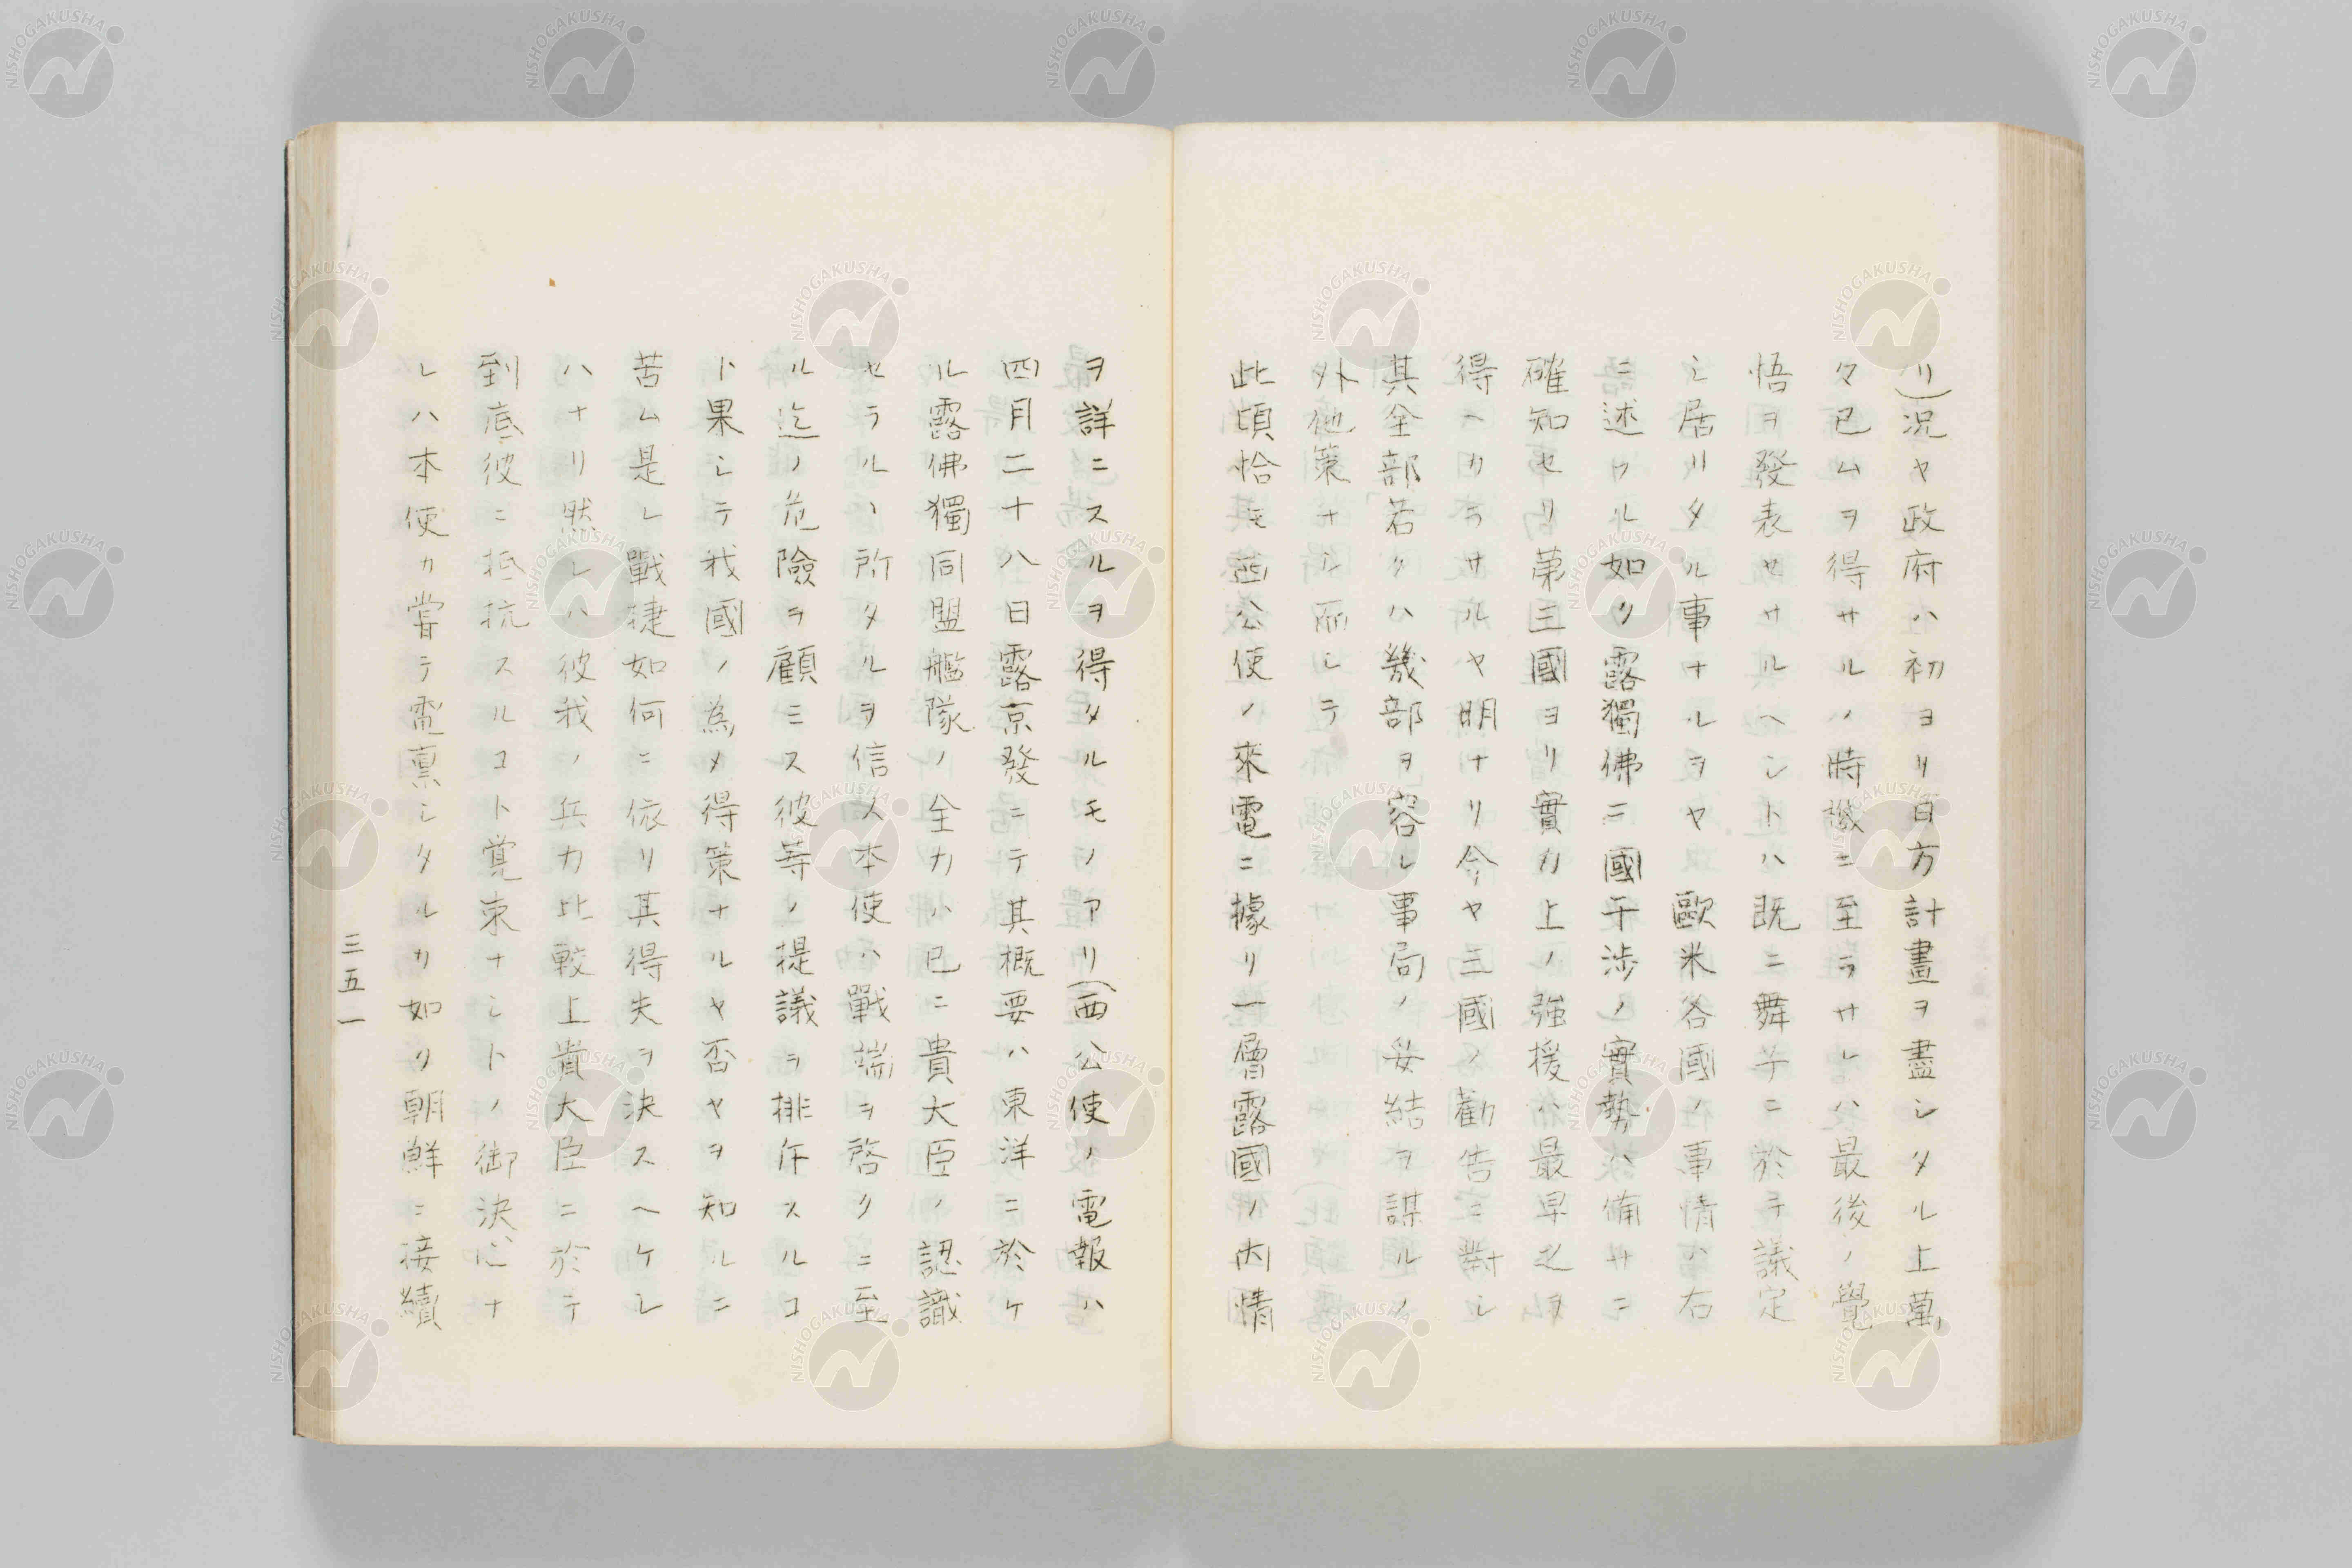 リ)況ヤ政府ハ初ヨリ百方計畫ヲ盡シタル上萬
々已ムヲ得サルノ時機ニ至ラサレハ最後ノ覺
悟ヲ發表セサルヘシトハ既ニ舞子ニ於テ議定
シ居リタル事ナルヲヤ 歐米各國ノ事情ハ右
ニ述フル如ク露獨佛三國干渉ノ實勢ハ備サニ
確知セリ第三國ヨリ實力上ノ強援ハ最早之ヲ
得ヘカラサルヤ明ナリ今ヤ三國ノ勸告ニ對シ
其全部若クハ幾部ヲ容レ事局ノ妥結ヲ謀ルノ
外他策ナシ而シテ
此頃恰モ西公使ノ來電ニ據リ一層露國ノ内情
ヲ詳ニスルヲ得タルモノアリ(西公使ノ電報ハ
四月二十八日露京發ニテ其概要ハ東洋ニ於ケ
ル露佛獨同盟艦隊ノ全力ハ已ニ貴大臣ノ認識
セラルヽ所タルヲ信ス本使ハ戰端ヲ啓クニ至
ル迄ノ危險ヲ顧ミス彼等ノ提議ヲ排斥スルコ
ト果シテ我國ノ為メ得策ナルヤ否ヤヲ知ルニ
苦ム是レ戰捷如何ニ依リ其得失ヲ決スヘケレ
ハナリ然レハ彼我ノ兵力比較上貴大臣ニ於テ
到底彼ニ抵抗スルコト覚束ナシトノ御決心ナ
レハ本使カ嘗テ電稟シタルカ如ク朝鮮ニ接續
三五一
NISHOGAKUSHA